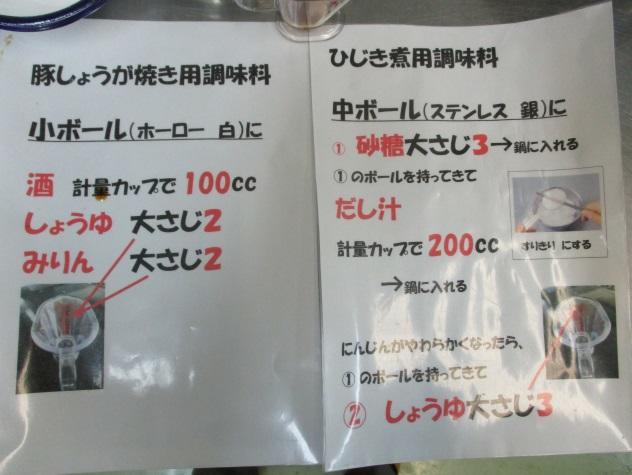 豚しょうが焼き用調味料
小ボール(ホーロー 白)に
酒 計量カップで 100cc
しょうゆ 大さじ2
みりん 大さじ2
ひじき煮用調味料
中ボール(ステンレス 銀)に
① 砂糖大さじ3→鍋に入れる
①のボールを持ってきて
だし汁
計量カップで 200cc
すりきり にする
→鍋に入れる
にんじんがやわらかくなったら、
①のボールを持ってきて
② しょうゆ大さじ3